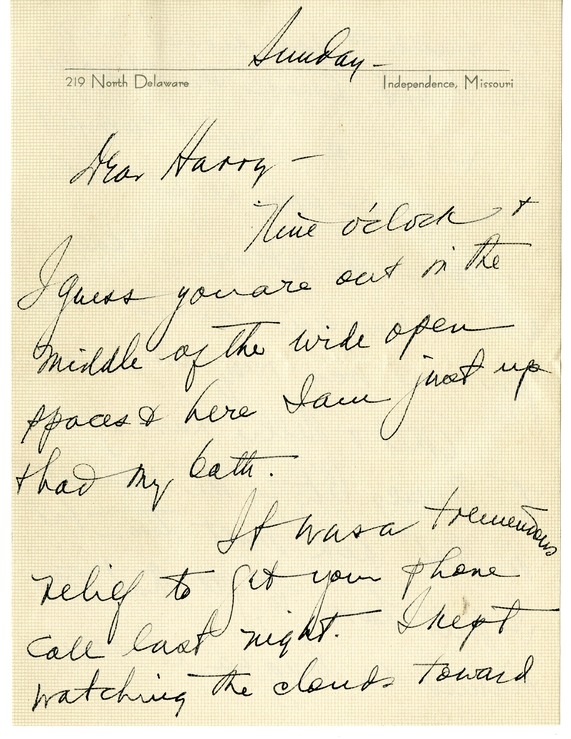 Sunday –
219 North Delaware Independence, Missouri
Dear Harry –
Nine o'clock +
I guess you are out in the
middle of the wide open
spaces & here I am just up
+ had my bath.
It was a tremendous
relief to get your phone
call last night. I kept
watching the clouds toward